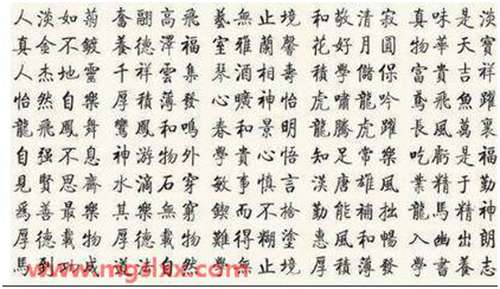 人淡如菊 奮翮高飛 藝無止境 和敬清寂 真味是淡
真金不鍍 養德澤福 室雅蘭馨 花好月圓 物華天寶
人杰地靈 千祥雲集 琴酒相壽 積學儲 富貴吉祥
怡然自樂 厚積薄發 心曠神怡 虎嘯龍吟 鳶飛魚躍
龍飛鳳舞 鸞鳳和鳴 春和景明 龍騰虎躍 長風萬裏
自强不息 神游物外 禪貴心悟 知足常樂 吃虧是福
見賢思齊 水滴石穿 敏事慎言 漢唐雄風 業精于勤
爲善最樂 其樂無窮 鍥而不捨 勤能補拙 龍馬精神
厚德載物 厚德載物 難得糊塗 惠風和暢 入幽出朗
馬到功成 道法自然 學無止境 厚積薄發 學書養志
www.mgslxx.com